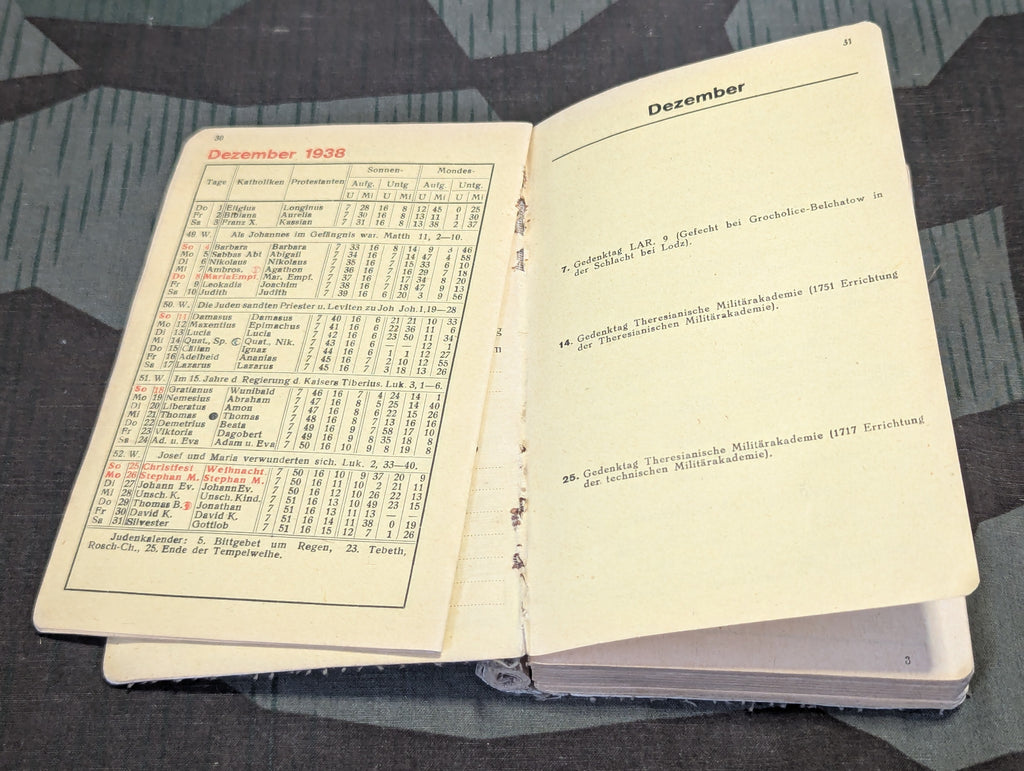 30
Dezember 1938
Tage Katholiken Protestanten Sonnen- Mondes-
Aufg. Untg Aufg. Untg.
U Mi U Mi U Mi U Mi
Do 1 Eligius Longinus 7 28 16 8 12 45 0 25
Fr 2 Bibiana Aurelia 7 30 16 8 13 11 1 30
Sa 3 Franz X. Kassian 7 31 16 8 13 38 2 37
49 W. Als Johannes im Gefängnis war. Matth 11, 2—10.
So 4 Barbara Barbara 7 33 16 8 14 9 4 46
Mo 5 Sabbas Abt Abigail 7 34 16 7 14 47 4 58
Di 6 Nikolaus Nikolaus 7 35 16 7 15 33 6 10
Mi 7 Ambros. Agathon 7 36 16 7 16 29 7 18
Do 8 Mariä Empf. Mar. Empf. 7 37 16 7 17 34 8 20
Fr 9 Leokadia Joachim 7 38 16 7 18 47 9 13
Sa 10 Judith Judith 7 39 16 6 20 3 9 56
50. W. Die Juden sandten Priester u. Leviten zu Joh Joh. 1,19—28
So 11 Damasus Damasus 7 40 16 6 21 21 10 33
Mo 12 Maxentius Epimachus 7 41 16 6 22 36 11 6
Di 13 Lucia Lucia 7 42 16 6 23 50 11 34
Mi 14 Quat., Sp. Quat., Nik. 7 43 16 6 — — 12 1
Do 15 Ignaz 7 44 16 6 1 1 12 27
Fr 16 Adelheid Ananias 7 45 16 7 2 10 12 55
Sa 17 Lazarus Lazarus 7 45 16 7 3 18 13 26
51. W. Im 15. Jahre d. Regierung d. Kaisers Tiberius. Luk. 3, 1—6.
So 18 Gratianus Wunibald 7 46 16 7 4 24 14 1
Mo 19 Nemesius Abraham 7 47 16 8 5 25 14 40
Di 20 Liberatus Amon 7 47 16 8 6 22 15 26
Mi 21 Thomas Thomas 7 48 16 8 7 13 16 16
Do 22 Demetrius Beata 7 49 16 9 7 58 17 10
Fr 23 Viktoria Dagobert 7 49 16 9 8 35 18 8
Sa 24 Ad. u. Eva Adam u. Eva 7 50 16 10 9 8 19 8
52. W. Josef und Maria verwunderten sich. Luk. 2, 33—40.
So 25 Christfest Weihnacht 7 50 16 10 9 37 20 9
Mo 26 Stephan M. Stephan M. 7 50 16 11 10 2 21 11
Di 27 Johann Ev. Johann Ev. 7 50 16 12 10 26 22 13
Mi 28 Unsch. K. Unsch. Kind. 7 51 16 13 10 49 23 15
Do 29 Thomas B. Jonathan 7 51 16 13 11 13 — —
Fr 30 David K. David K. 7 51 16 14 11 38 0 19
Sa 31 Silvester Gottlob 7 51 16 15 12 7 1 26
Judenkalender: 5. Bittgebet um Regen, 23. Tebeth,
Rosch-Ch., 25. Ende der Tempelweihe.
31
Dezember
7. Gedenktag LAR. 9 (Gefecht bei Grocholice-Belchatow in
der Schlacht bei Lodz).
14. Gedenktag Theresianische Militärakademie (1751 Errichtung
der Theresianischen Militärakademie).
25. Gedenktag Theresianische Militärakademie (1717 Errichtung
der technischen Militärakademie).
3